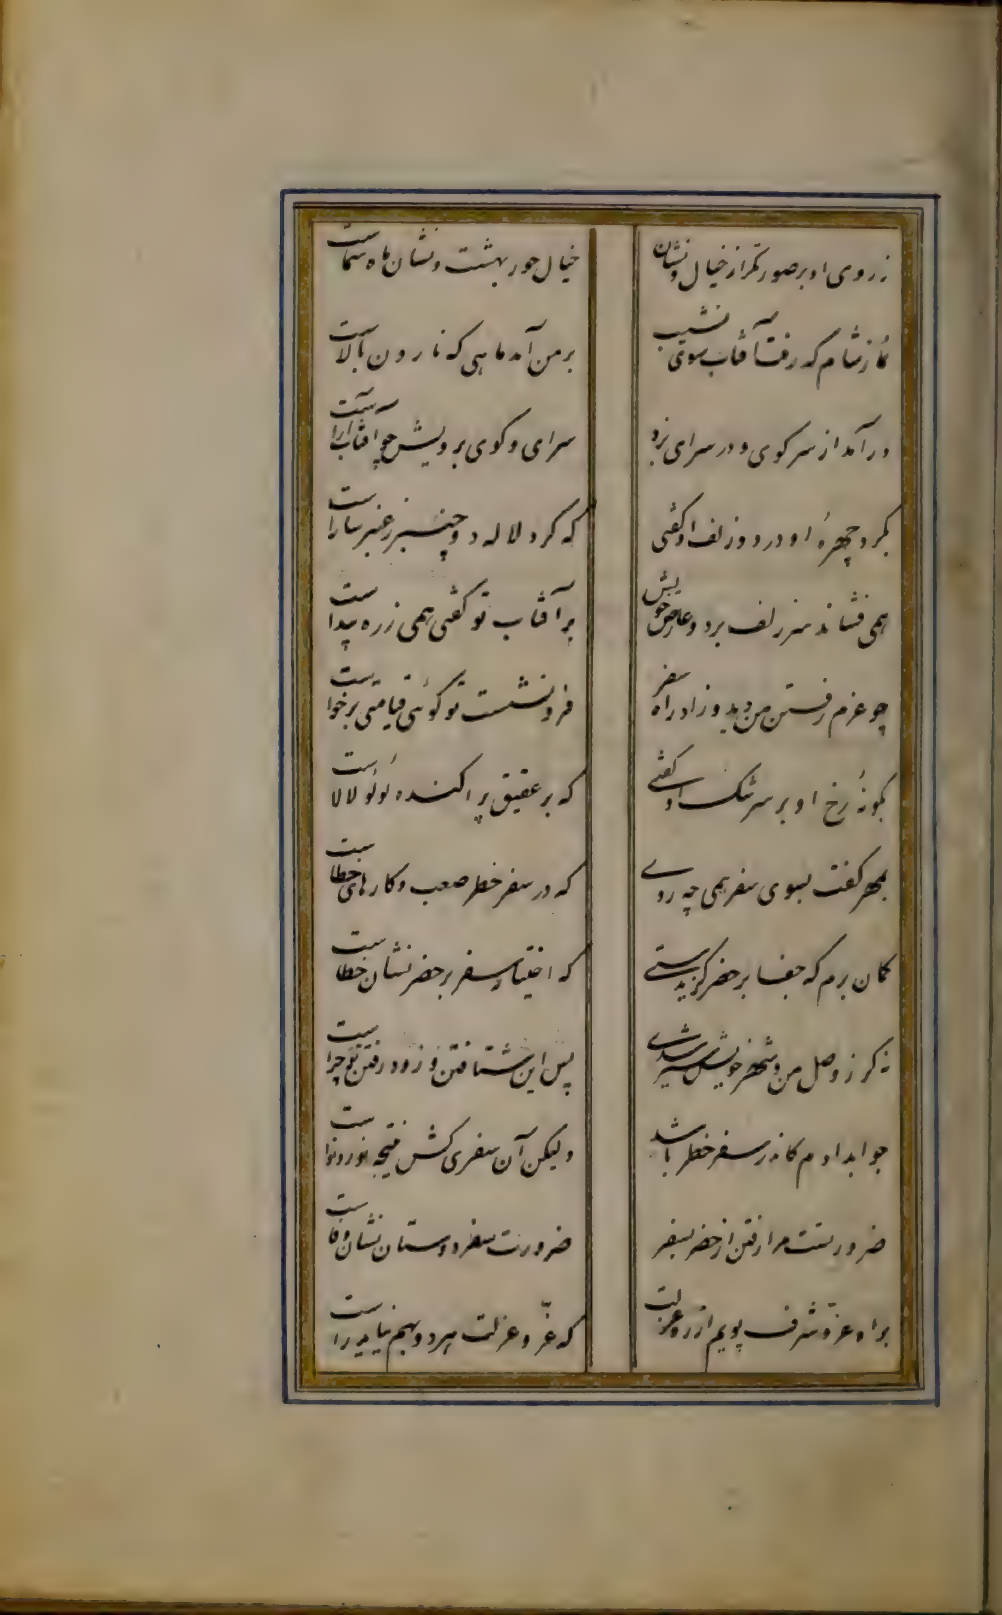 ز روی او بر صورتگر از خیال و نشان
خیال حور بهشت و نشان ماه سماست
نماز شام که رفت آفتاب سوی نشیب
بر من آمد ماهی که نارون بالاست
در آمد از سر کوی و در سرای بزد
سرای و کوی برویش چو آفتاب آراست
بگرد چهرهٔ او در دو زلف او گفتی
که گرد لاله دو چنبر ز عنبر ساراست
همی فشاند سر زلف برد و عارض خویش
بر آفتاب تو گفتی همی زره پیداست
چو عزم رفتن من دید و زاد راه سفر
فرو نشست تو گوئی قیامتی برخواست
بگونهٔ رخ او بر سرشک او گفتی
که بر عقیق پراکنده لؤلؤ لالاست
بمهر گفت بسوی سفر همی چه روی
که در سفر خطر صعب و کارهای خطاست
گمان برم که جفا بر حضر گزیدستی
که اختیار سفر بر حضر نشان خطاست
نه گر ز وصل من و شهر خویش سیر شدی
پس این شتافتن و زود رفتن تو چراست
جواب دادم کاندر سفر خطر باشد
ولیکن آن سفری کش نتیجه نور و نواست
ضرورتست مرا رفتن از حضر بسفر
ضرورت سفر دوستان نشان وفاست
براه عز و شرف پویم از ره عزلت
که عزّ و عزلت هر دو بهم نیاید راست